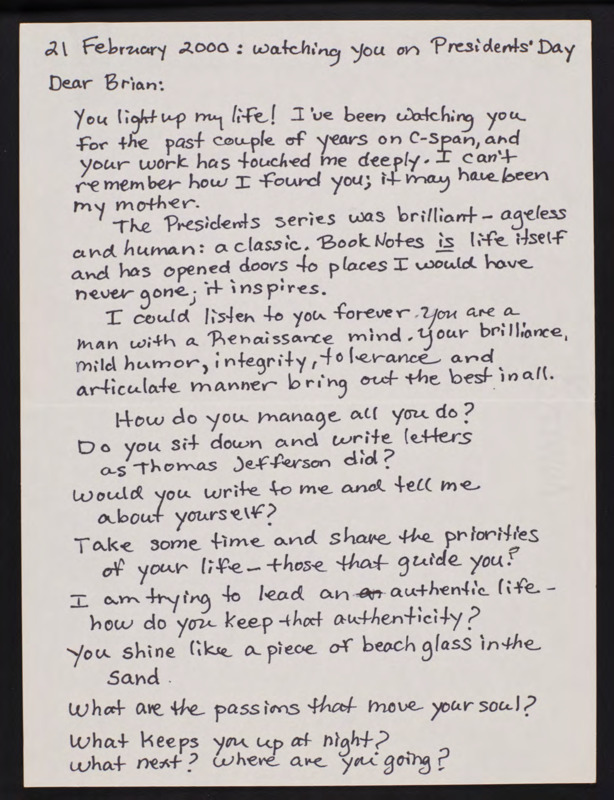 21 February 2000: watching you on Presidents' Day
Dear Brian:
You light up my life! I've been watching you
for the past couple of years on C-Span, and
your work has touched me deeply. I can't
remember how I found you; it may have been
my mother.
The Presidents series was brilliant - ageless
and human: a classic. Book Notes is life itself
and has opened doors to places I would have
never gone; it inspires.
I could listen to you forever. You are a
man with a Renaissance mind. Your brilliance,
mild humor, integrity, tolerance and
articulate manner bring out the best in all.
How do you manage all you do?
Do you sit down and write letters
as Thomas Jefferson did?
Would you write to me and tell me
about yourself?
Take some time and share the priorities
of your life - those that guide you?
I am trying to lead an an authentic life -
how do you keep that authenticity?
You shine like a piece of beach glass in the
sand.
What are the passions that move your soul?
What keeps you up at night?
What next? Where are you going?